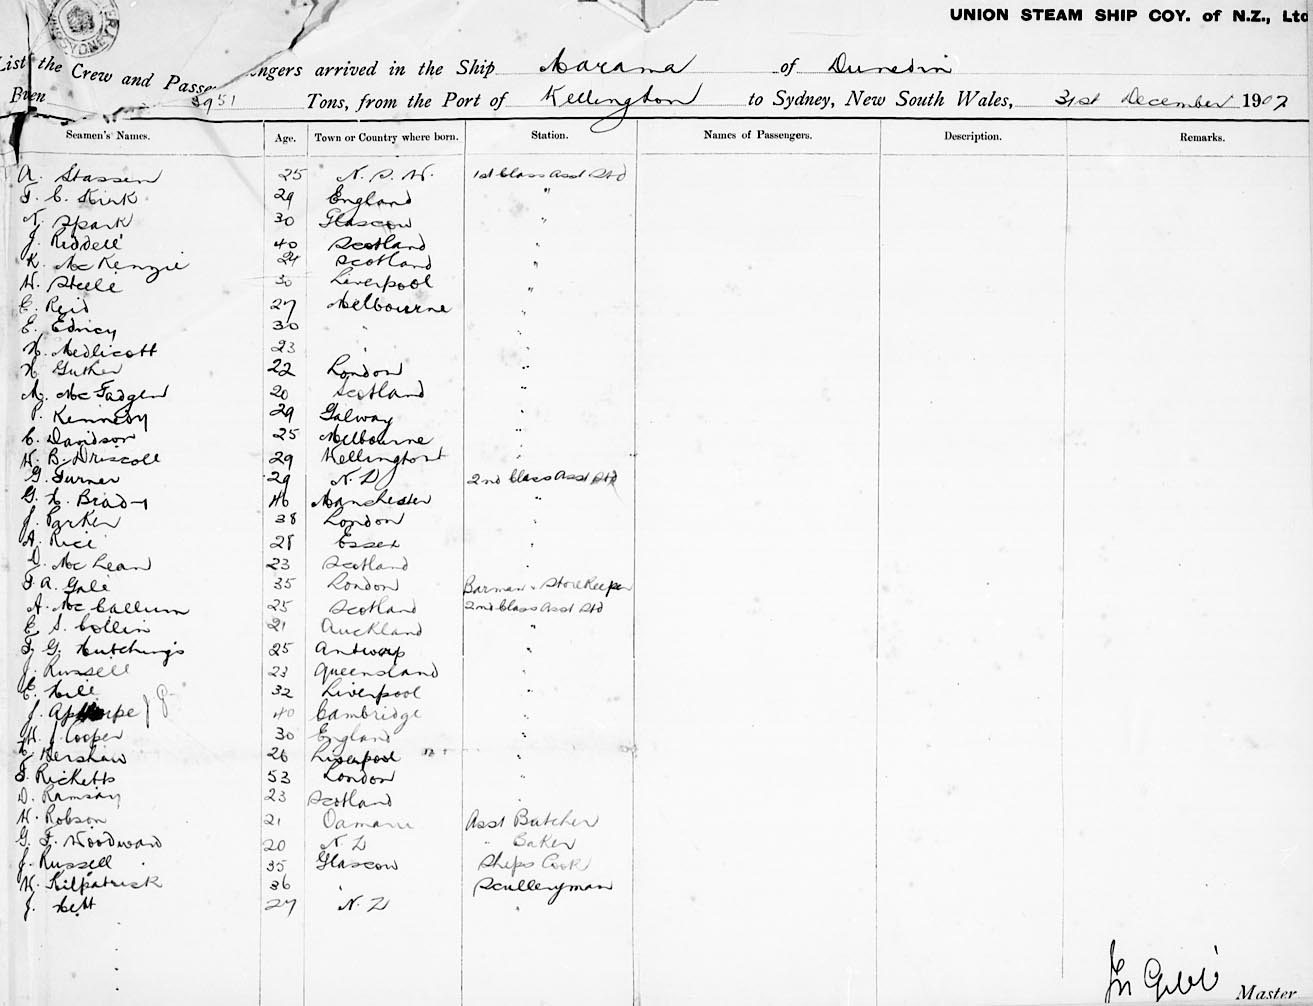 UNION STEAM SHIP COY. of N.Z., Ltd
List the Crew and Passengers arrived in the Ship Marama of Dunedin
Tons, from the Port of Wellington to Sydney, New South Wales, 31st December 1907
Seamen's Names. Age. Town or Country where born. Station. Names of Passengers. Description. Remarks.
A. Stassen 25 N.S.W. 1st Class Asst Std
F. C. Kirk 29 England "
N. Spark 30 Glascow "
J. Riddell 40 Scotland "
K. McKenzie 24 Scotland "
W. Steele 30 Liverpool "
C. Reid 27 Melbourne "
E. Edney 30 " "
H. Medlicott 23 " "
H. Guther 22 London "
M. McFadgen 20 Scotland "
P. Kennedy 29 Galway "
C. Davidson 25 Melbourne "
W. B. Driscoll 29 Wellington "
G. Turner 29 N.Z. 2nd Class Asst Std
G. H. Brady 46 Manchester "
J. Parker 38 London "
A. Rice 28 Essex "
D. McLean 23 Scotland "
F. A. Gale 35 London Barman & StoreKeeper
A. McCallum 25 Scotland 2nd Class Asst Std
C. S. Collin 21 Auckland "
F. G. Hutchings 25 Antwerp "
J. Russell 23 Queensland "
C. Hill 32 Liverpool "
J. Apthorpe 40 Cambridge "
W. J. Cooper 30 England "
Kershaw 26 Liverpool "
Ricketts 53 London "
D. Ramsay 23 Scotland "
W. Robson 21 Oamaru Asst Butcher
G. F. Woodward 20 N.Z. " Baker
J. Russell 35 Glascow Ships Cook
W. Kilpatrick 36 " Scullery man
J. Hett 27 N.Z. "
Master